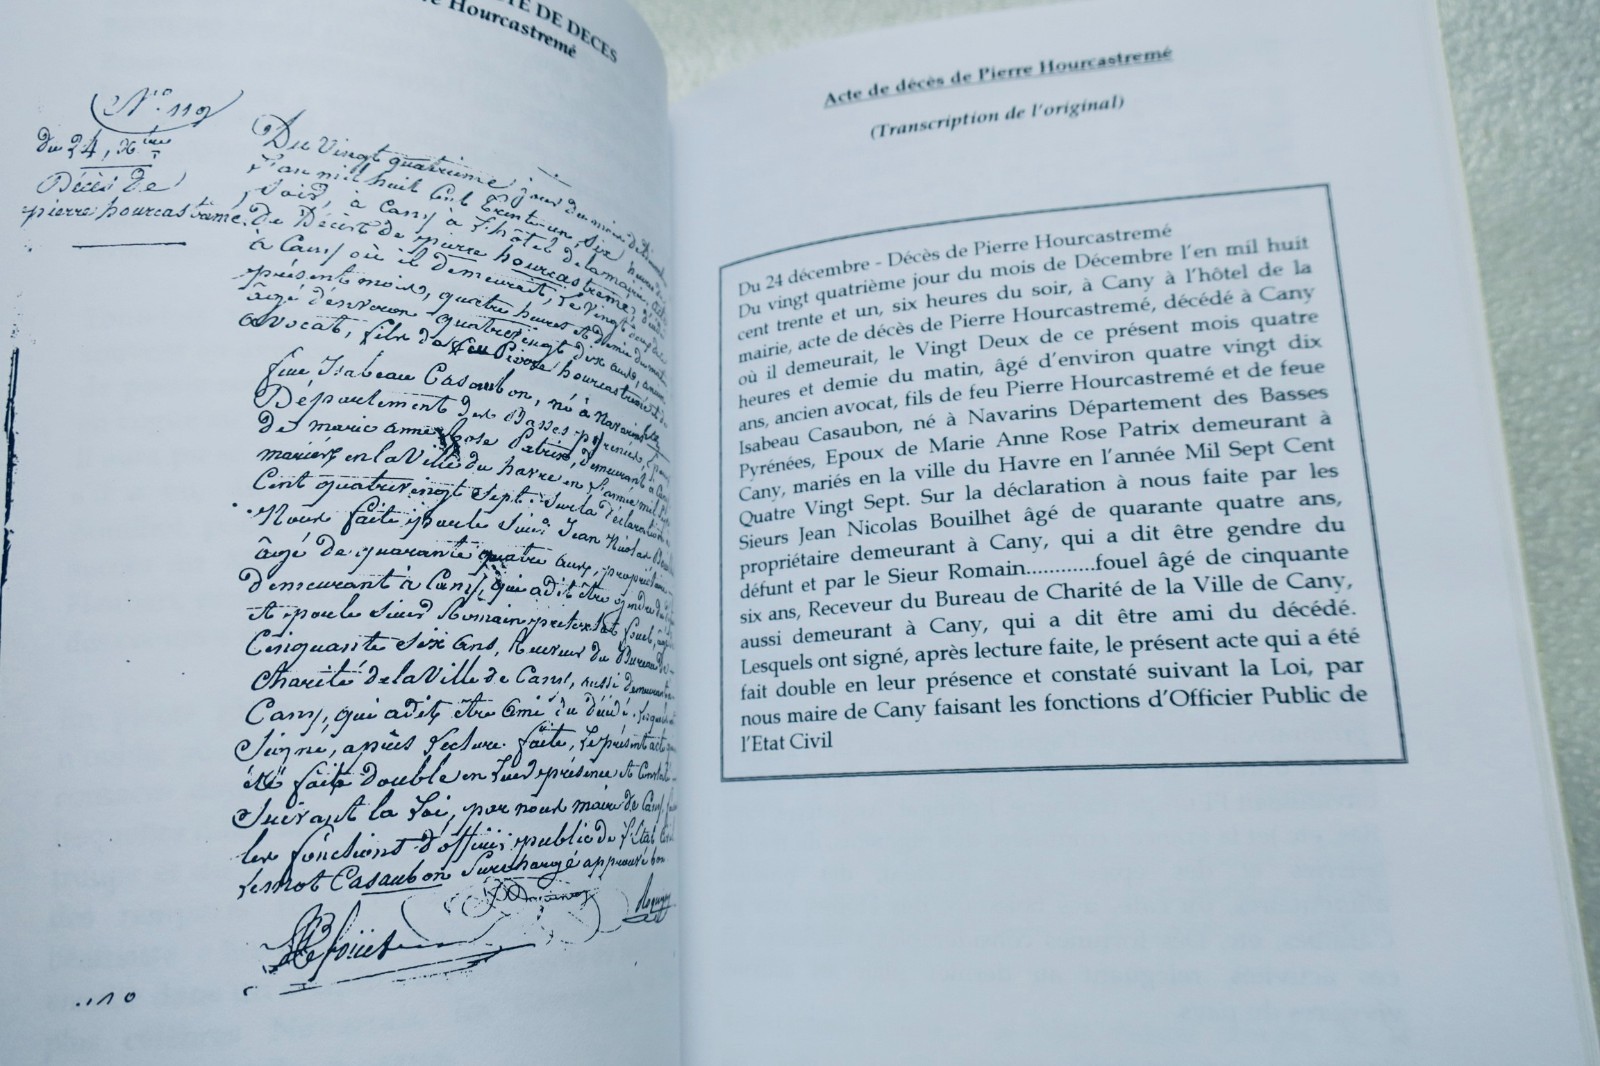 TE DE DECES
e Hourcastremé
N.o 119
du 24, xbre
Décès de
pierre hourcastremé.
Du vingt quatrieme jour du mois de
L'an mil huit Cent trente un, six heures
soir, à Cany à l'hôtel de la mairie,
de Décès de pierre hourcastremé,
à Cany où il demeurait, le vingt
présent mois, quatre heures et demie du matin
âgé d'environ quatrevingt dix ans,
avocat, fils de feu Pierre hourcastremé
feue Isabeau Casaubon, né à Navarins
Département des Basses pyrénées,
de marie anne Rose Patrix, demeurant à
mariés en la Ville du havre en l'année mil
Cent quatrevingt Sept. Sur la déclaration
Nous faite par le Sieur Jean Nicolas
âgé de quarante quatre ans, propriétaire
demeurant à Cany, qui a dit être gendre
et par le Sieur Romain pretextat fouel,
Cinquante Six ans, Receveur du Bureau de
Charité de la Ville de Cany, aussi demeurant
Cany, qui a dit être ami du décédé.
Signé, après lecture faite, le présent acte
été fait double en leur présence et Constaté
Suivant la Loi, par nous maire de Cany
les fonctions d'officier public de l'état Civil
le mot Casaubon Surchargé approuvé bon
..110
Acte de décès de Pierre Hourcastremé
(Transcription de l'original)
Du 24 décembre - Décès de Pierre Hourcastremé
Du vingt quatrième jour du mois de Décembre l'en mil huit
cent trente et un, six heures du soir, à Cany à l'hôtel de la
mairie, acte de décès de Pierre Hourcastremé, décédé à Cany
où il demeurait, le Vingt Deux de ce présent mois quatre
heures et demie du matin, âgé d'environ quatre vingt dix
ans, ancien avocat, fils de feu Pierre Hourcastremé et de feue
Isabeau Casaubon, né à Navarins Département des Basses
Pyrénées, Epoux de Marie Anne Rose Patrix demeurant à
Cany, mariés en la ville du Havre en l'année Mil Sept Cent
Quatre Vingt Sept. Sur la déclaration à nous faite par les
Sieurs Jean Nicolas Bouilhet âgé de quarante quatre ans,
propriétaire demeurant à Cany, qui a dit être gendre du
défunt et par le Sieur Romain............fouel âgé de cinquante
six ans, Receveur du Bureau de Charité de la Ville de Cany,
aussi demeurant à Cany, qui a dit être ami du décédé.
Lesquels ont signé, après lecture faite, le présent acte qui a été
fait double en leur présence et constaté suivant la Loi, par
nous maire de Cany faisant les fonctions d'Officier Public de
l'Etat Civil